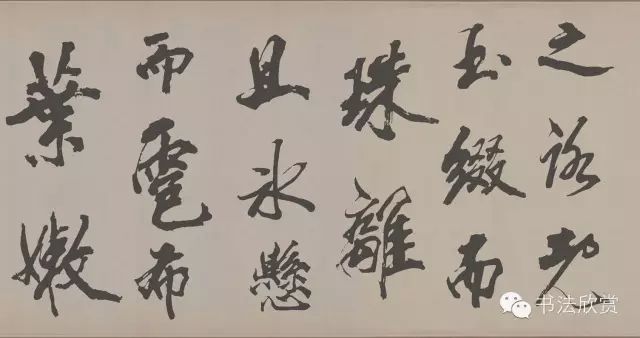 之
玉綴而
珠離
且冰懸
而雹布
葉嫩
书法欣赏